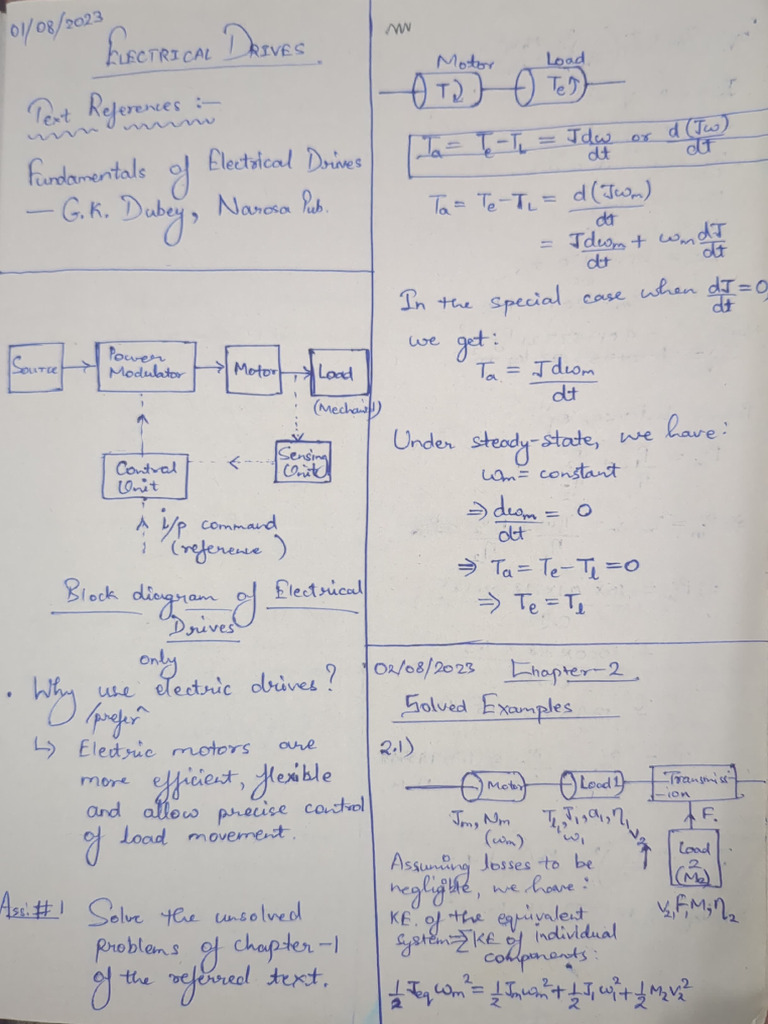 01/08/2023
ELECTRICAL DRIVES.
Text References :—
Fundamentals of Electrical Drives
— G.K. Dubey, Narosa Pub.
Source
Power Modulator
Motor
Load
(Mechanical)
Control Unit
Sensing Unit
i/p command
(reference)
Block diagram of Electrical
Drives
only
• Why use electric drives?
/prefer^
↳ Electric motors are
more efficient, flexible
and allow precise control
of load movement.
Assi.#1 Solve the unsolved
problems of chapter-1
of the referred text.
Motor Load
Te↑
Ta = Te - TL = Jdω/dt or d(Jω)/dt
Ta = Te - TL = d(Jωm)/dt
= Jdωm/dt + ωm dJ/dt
In the special case when dJ/dt = 0,
we get:
Ta = Jdωm/dt
Under steady-state, we have:
ωm = constant
⇒ dωm/dt = 0
⇒ Ta = Te - Tl = 0
⇒ Te = Tl
02/08/2023 Chapter-2.
Solved Examples
2.1)
Motor Load1 Transmiss-
ion
Jm, Nm
(ωm)
Tl1, J1, a1, η1
ω1
V2
F.
Load
2
(M2)
V2, F, M, η2
Assuming losses to be
negligible, we have:
KE. of the equivalent
system = Σ KE of individual
components:
½ Jeq ωm² = ½ Jmωm² + ½ J1ω1² + ½ M2V2²